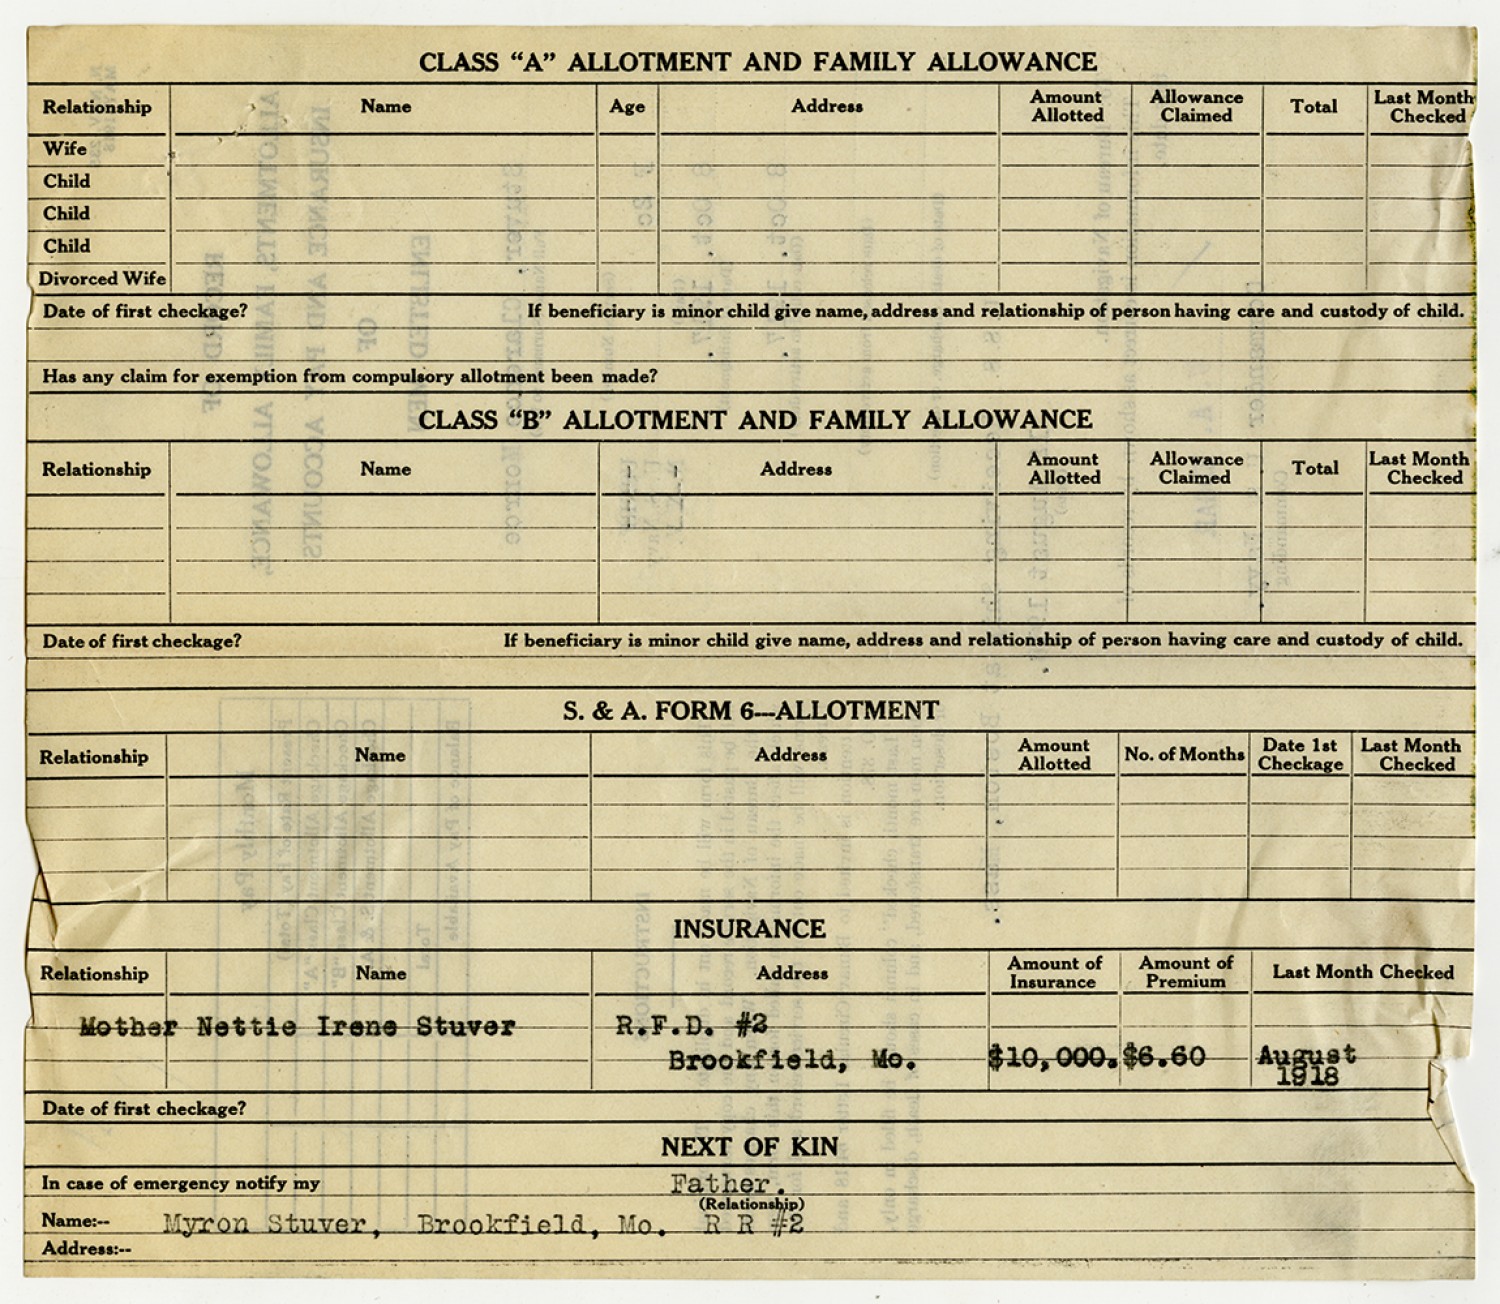 CLASS “A” ALLOTMENT AND FAMILY ALLOWANCE
Relationship Name Age Address Amount Allotted Allowance Claimed Total Last Month Checked
Wife
Child
Child
Child
Divorced Wife
Date of first checkage? If beneficiary is minor child give name, address and relationship of person having care and custody of child.
Has any claim for exemption from compulsory allotment been made?
CLASS “B” ALLOTMENT AND FAMILY ALLOWANCE
Relationship Name Address Amount Allotted Allowance Claimed Total Last Month Checked
Date of first checkage? If beneficiary is minor child give name, address and relationship of person having care and custody of child.
S. & A. FORM 6—ALLOTMENT
Relationship Name Address Amount Allotted No. of Months Date 1st Checkage Last Month Checked
INSURANCE
Relationship Name Address Amount of Insurance Amount of Premium Last Month Checked
Mother Nettie Irene Stuver R.F.D. #2
Brookfield, Mo. $10,000. $6.60 August
1918
Date of first checkage?
NEXT OF KIN
In case of emergency notify my Father.
(Relationship)
Name:-- Myron Stuver, Brookfield, Mo. R R #2
Address:--